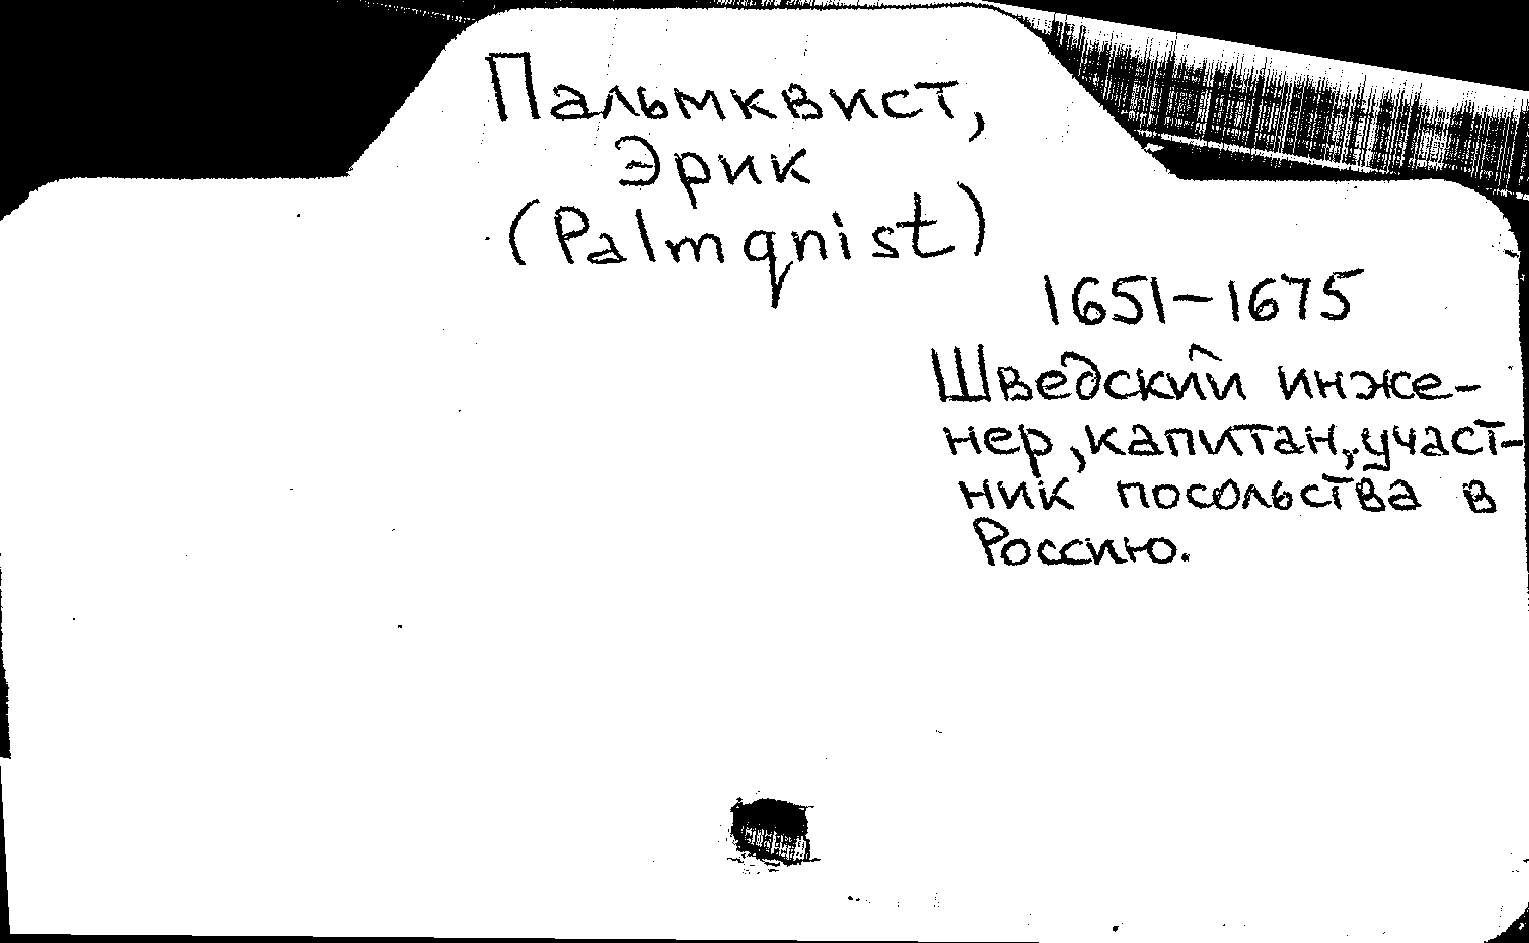 Пальмквист,
Эрик
(Palmqnist)
1651-1675
Шведский инже-
нер, капитан, участ-
ник посольства в
Россию.